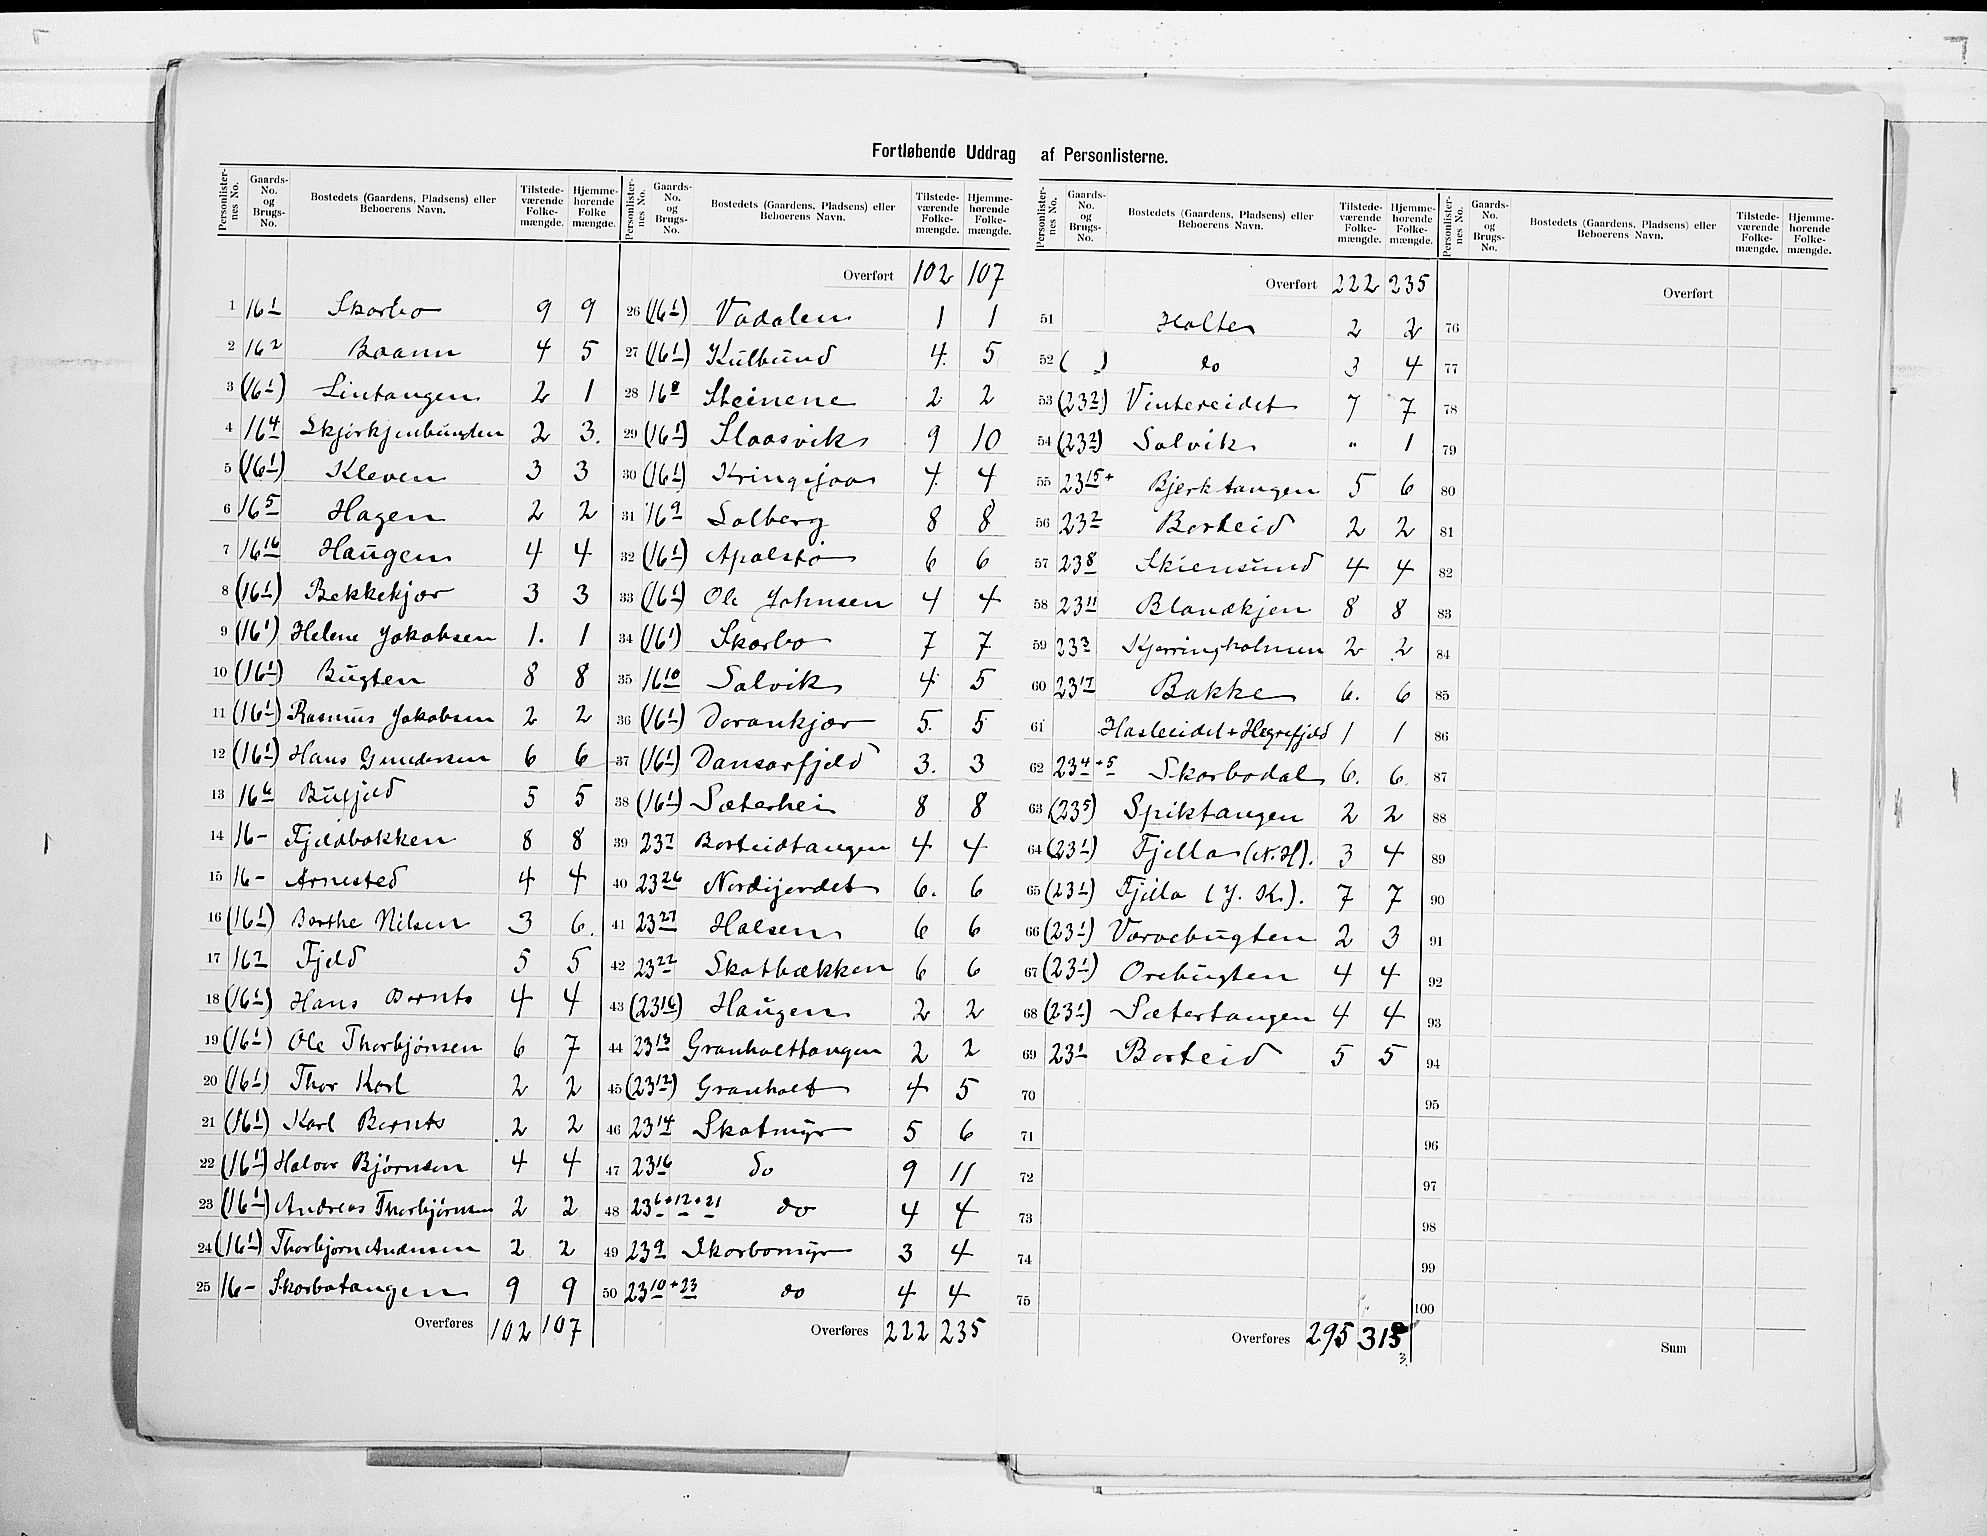 Fortløbende Uddrag af Personlisterne.
Personlister-nes No. | Gaards-No. og Brugs-No. | Bostedets (Gaardens, Pladsens) eller Beboerens Navn. | Tilstede-værende Folke-mængde. | Hjemme-hørende Folke mængde.
1 16 1 Skarbo 9 9
2 16 2 Baann 4 5
3 (16 1) Lintangen 2 1
4 16 4 Skjørkjenbunden 2 3.
5 (16 1) Kleven 3 3
6 16 5 Hagen 2 2
7 16 16 Haugen 4 4
8 (16 1) Bekkekjær 3 3
9 (16 1) Helene Jakobsen 1. 1
10 (16 1) Bugten 8 8
11 (16 1) Rasmus Jakobsen 2 2
12 (16 1) Hans Gundersen 6 6
13 16 6 Bufjeld 5 5
14 16 – Fjeldbakken 8 8
15 16 – Arnested 4 4
16 (16 1) Berthe Nilsen 3 6.
17 16 7 Fjeld 5 5
18 (16 1) Hans Bernts 4 4
19 (16 1) Ole Thorbjørnsen 6 7
20 (16 1) Thor Karl 2 2
21 (16 1) Karl Bernts 2 2
22 (16 1) Halvor Bjørnsen 4 4
23 (16 1) Andreas Thorbjørnsen 2 2
24 (16 1) Thorbjørn Andersen 2 2
25 16 – Skarbotangen 9 9
Overføres 102 107
Personlister-nes No. | Gaards-No. og Brugs-No. | Bostedets (Gaardens, Pladsens) eller Beboerens Navn. | Tilstede-værende Folke-mængde. | Hjemme-hørende Folke-mængde.
Overført 102 107
26 (16 1) Vadalen 1 1
27 (16 1) Kulbund 4. 5
28 16 8 Steinene 2 2
29 (16 1) Slaasvik 9 10
30 (16 1) Kringsjaa 4. 4
31 16 9 Solberg 8 8
32 (16 1) Apalstø 6 6
33 (16 1) Ole Johnsen 4 4
34 (16 1) Skarbo 7 7
35 16 10 Solvik 4. 5
36 (16 1) Dorankjær 5. 5
37 (16 1) Dansarfjeld 3. 3
38 (16 1) Sæterhei 8 8
39 23 7 Borteidtangen 4 4
40 23 26 Nordijordet 6. 6
41 23 27 Halsen 6 6
42 23 22 Skatbækken 6 6
43 (23 16) Haugen 2 2
44 23 13 Granholttangen 2 2
45 (23 12) Granholt 4 5
46 23 14 Skatmyr 5 6
47 23 16 do 9 11
48 23 6 + 12 + 21 do 4 4
49 23 9 Skarbomyr 3 4
50 23 10 + 23 do 4 4
Overføres 222 235
Personlister-nes No. | Gaards-No. og Brugs-No. | Bostedets (Gaardens, Pladsens) eller Beboerens Navn. | Tilstede-værende Folke-mængde. | Hjemme-hørende Folke-mængde.
Overført 222 235
51 Holte 2 2
52 ( „ ) do 3 4
53 (23 2) Vintereidet 7 7
54 (23 2) Solvik " 1
55 23 15 + Bjerktangen 5 6
56 23 2 Borteid 2 2
57 23 8 Skiensund 4 4
58 23 11 Blandkjen 8 8
59 23 3 Kjerringholmen 2 2
60 23 17 Bakke 6. 6
61 Hasleeidet + Hegrefjeld 1 1
62 23 4 + 5 Skarbodal 6. 6
63 (23 5) Spiktangen 2 2
64 (23 1) Fjella (N. H). 3 4
65 (23 1) Fjella (J. K.). 7 7
66 (23 1) Varvebugten 2 3
67 (23 1) Orebugten 4 4
68 (23 1) Sætertangen 4 4
69 23 1 Borteid 5 5
70
71
72
73
74
75
Overføres 295 315
3.
Personlister-nes No. | Gaards-No. og Brugs-No. | Bostedets (Gaardens, Pladsens) eller Beboerens Navn. | Tilstede-værende Folke-mængde. | Hjemme-hørende Folke-mængde.
Overført
76
77
78
79
80
81
82
83
84
85
86
87
88
89
90
91
92
93
94
95
96
97
98
99
100
Sum